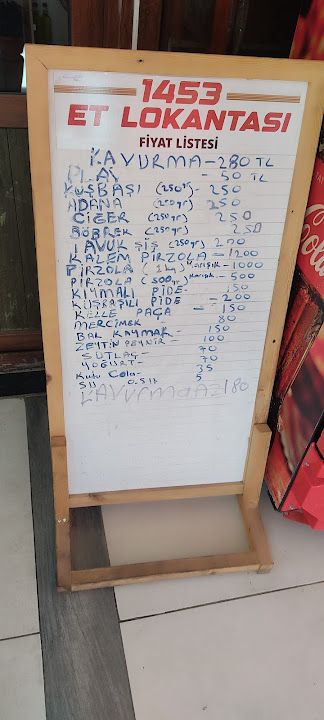 1453
ET LOKANTASI
FİYAT LİSTESİ
KAVURMA - 280 TL
50 TL
KUŞBAŞI (250gr) - 250
ADANA (250gr) 250
CİĞER (250gr) 250
BÖBREK (250gr) 250
TAVUK ŞİŞ (250gr) 200
KALEM PİRZOLA - 1200
PİRZOLA (1kg) karışık - 1000
PİRZOLA (500gr) karışık - 500
KIYMALI PİDE - 150
KUŞBAŞILI PİDE - 200
KELLE PAÇA - 150
MERCİMEK 80
BAL KAYMAK - 150
ZEYTİN PEYNİR - 100
SÜTLAÇ - 70
YOĞURT - 70
Kutu Cola - 35
SU 0.5lt 5
KAVURMA AZ 180